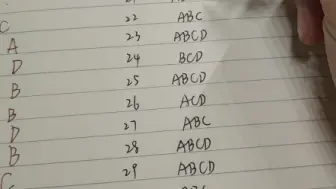 C 22 ABC
A 23 ABCD
D 24 BCD
B 25 ABCD
B 26 ACD
D 27 ABC
B 28 ABCD
C 29 ABCD